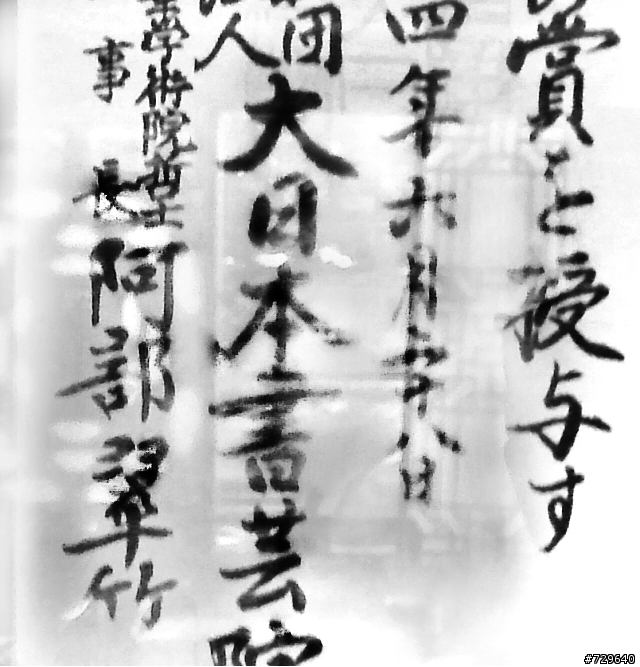 賞を授与す
四年六月二十八日
社団
法人
大日本書芸院
學術院顧
事
長
阿部翠竹
#729640